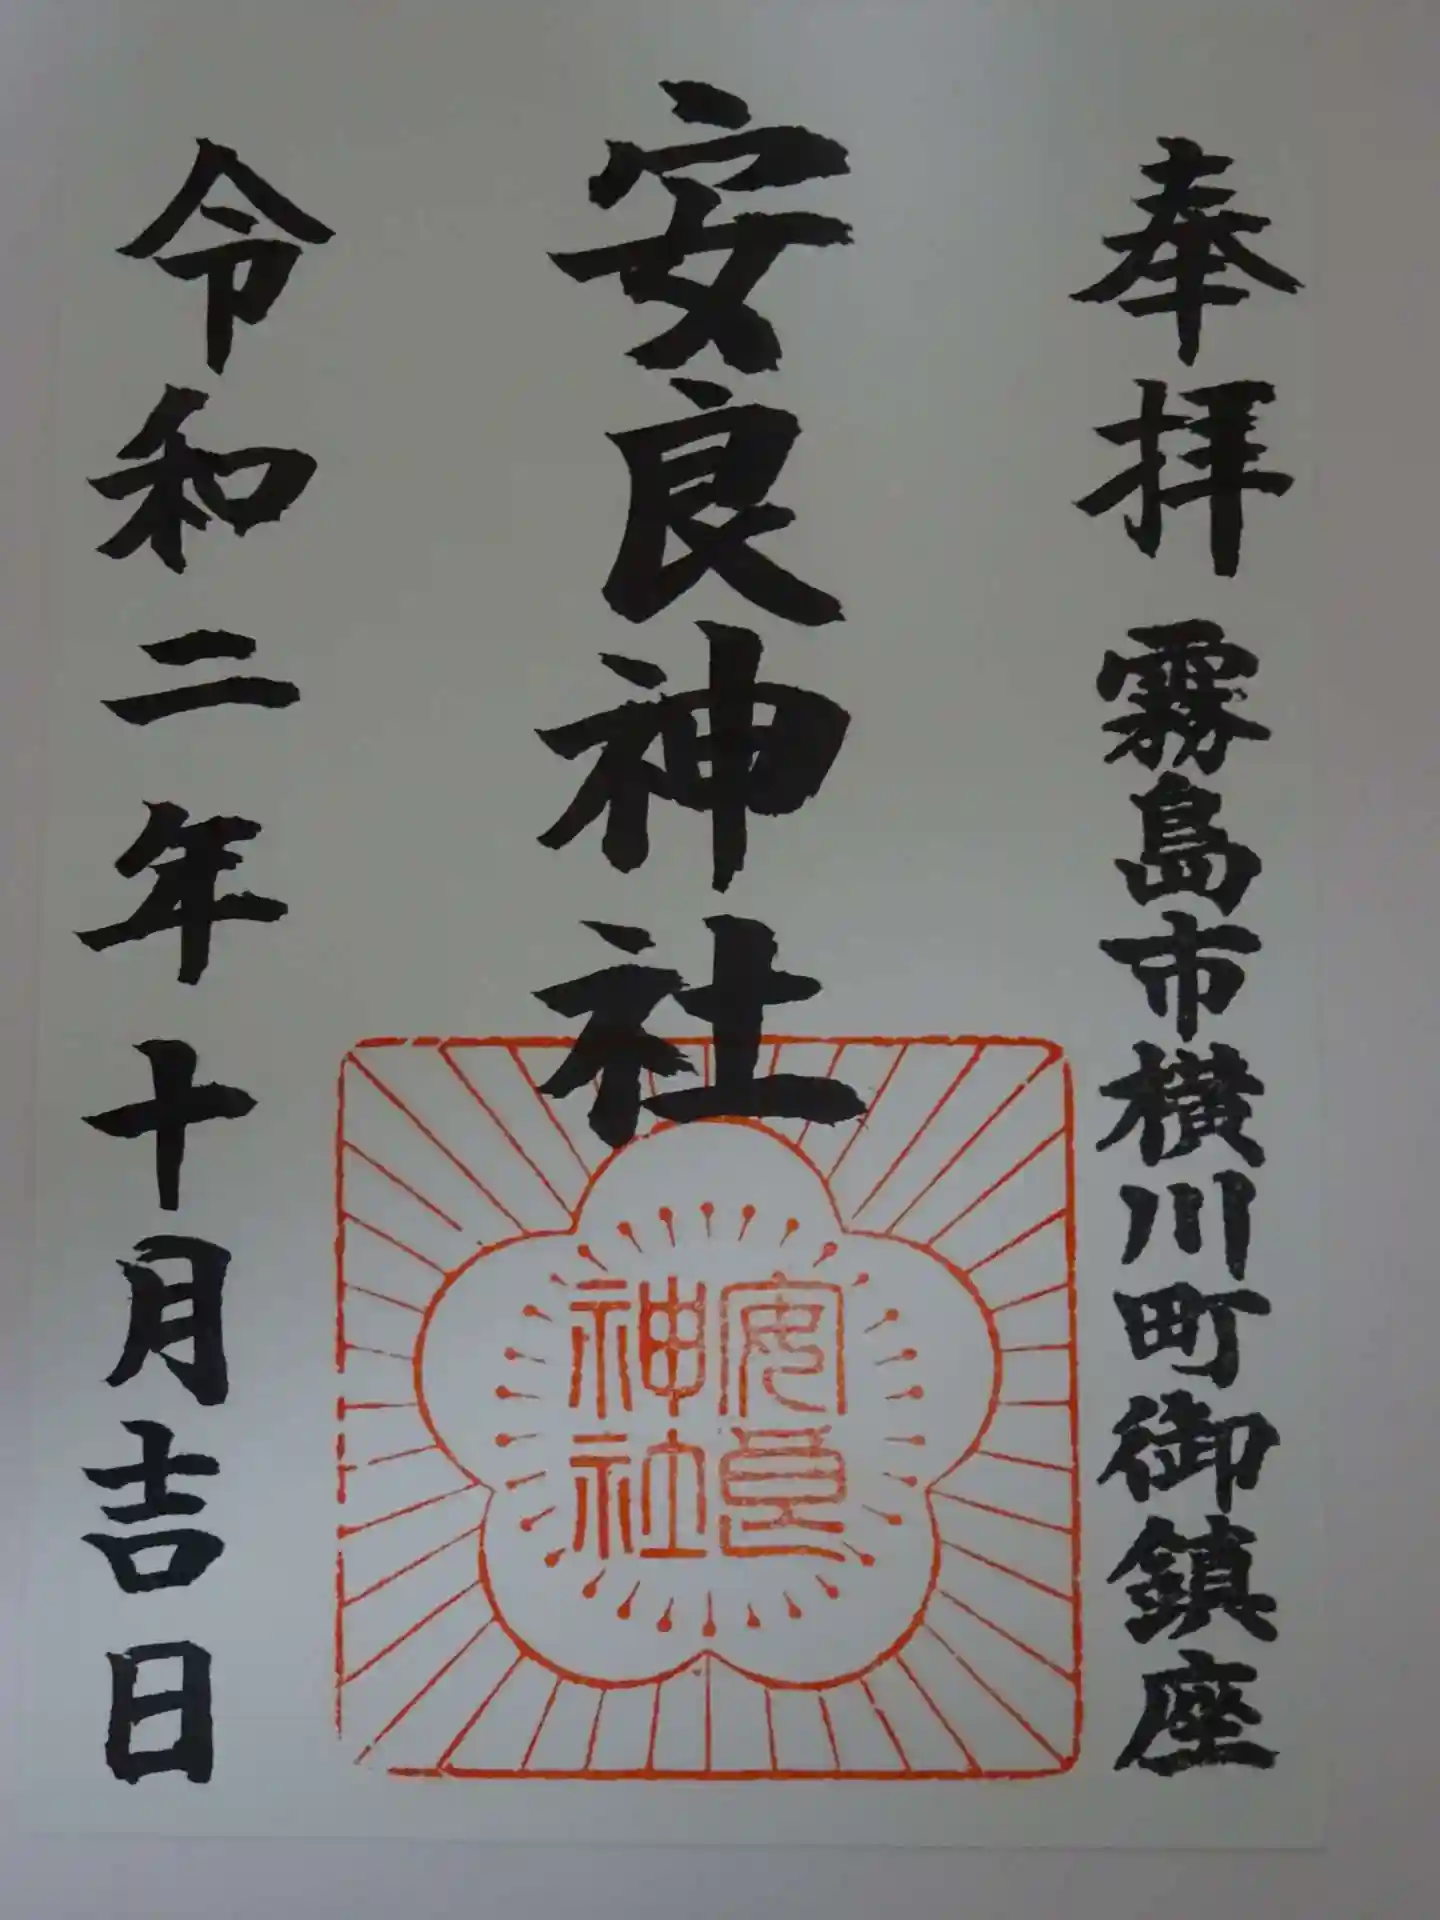 奉拝 霧島市横川町御鎮座
安良神社
安良
神社
令和二年十月吉日